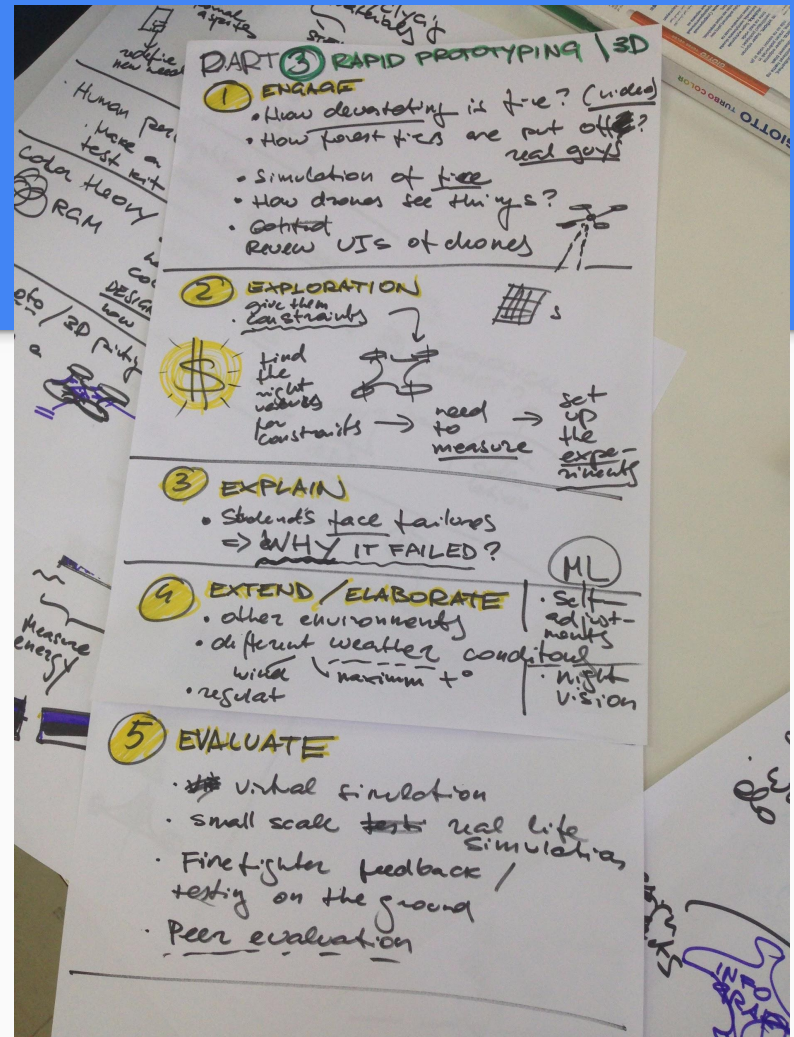 PART 3 RAPID PROTOTYPING \ 3D
1 ENGAGE
• How devastating is fire? (video)
• How forest fiers are put off?
real guys
• Simulation of fire
• How drones see things?
• Control
Review UIs of drones
2 EXPLORATION
give them
• constraints
$
find
the
right
for
constraits → need to measure → set up the expe-
riments
3 EXPLAIN
• Students face failures
=> WHY IT FAILED?
4 EXTEND / ELABORATE
• other environments
• different weather conditons
wind maximm +°
• regulat
ML
• Self
adjust-
ments
• night
vision
5 EVALUATE
• virtual simulation
• small scale tests real life
simulation
• Firefighter feedback /
testing on the ground
• Peer evaluation
redefine
new need
• Human
• Make a
test kit
Color theory
RGM
DESIGN
how
/ 3D printing
Measure
energy
GIOTTO TURBO COLOR
GIOTTO
INFO